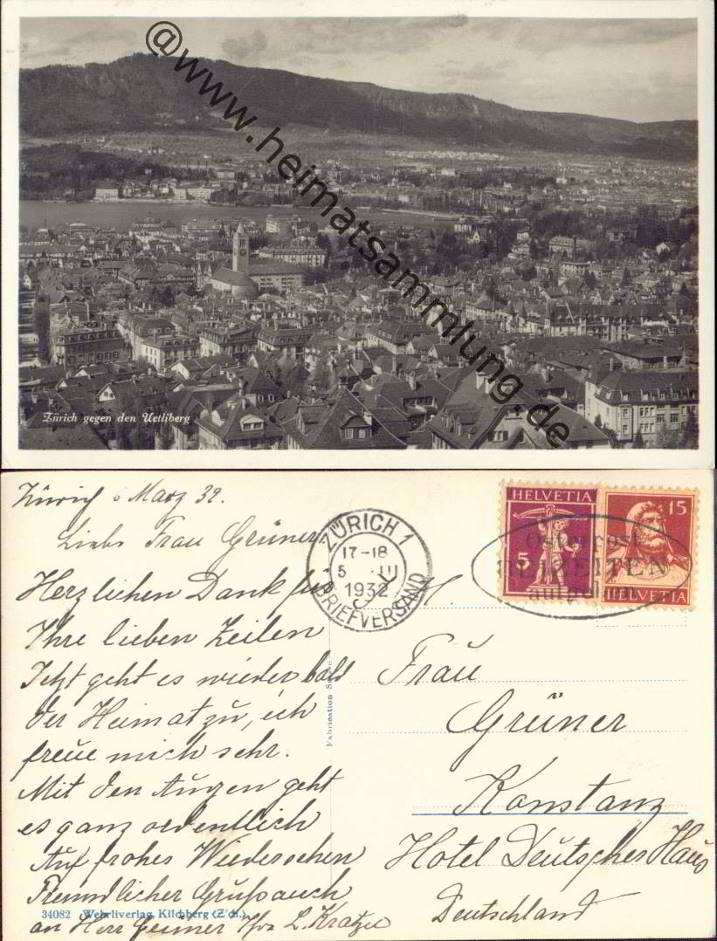 @www.heimatsammlung.de
Zürich gegen den Uetliberg
Zürich März 32.
Liebe Frau Grüner
Herzlichen Dank für
Ihre lieben Zeilen
Jetzt geht es wieder bald
der Heimat zu, ich
freue mich sehr.
Mit den Augen geht
es ganz ordentlich
Auf frohes Wiedersehen
Freundlicher Gruß auch
an Herr
ZÜRICH 1
17-18
5 III
1932
BRIEFVERSAND
HELVETIA
5
15
HELVETIA
Frau
Grüner
Konstanz
Hotel Deutsches Haus
Deutschland
34082 Wehrliverlag, Kilchberg (Zch.)